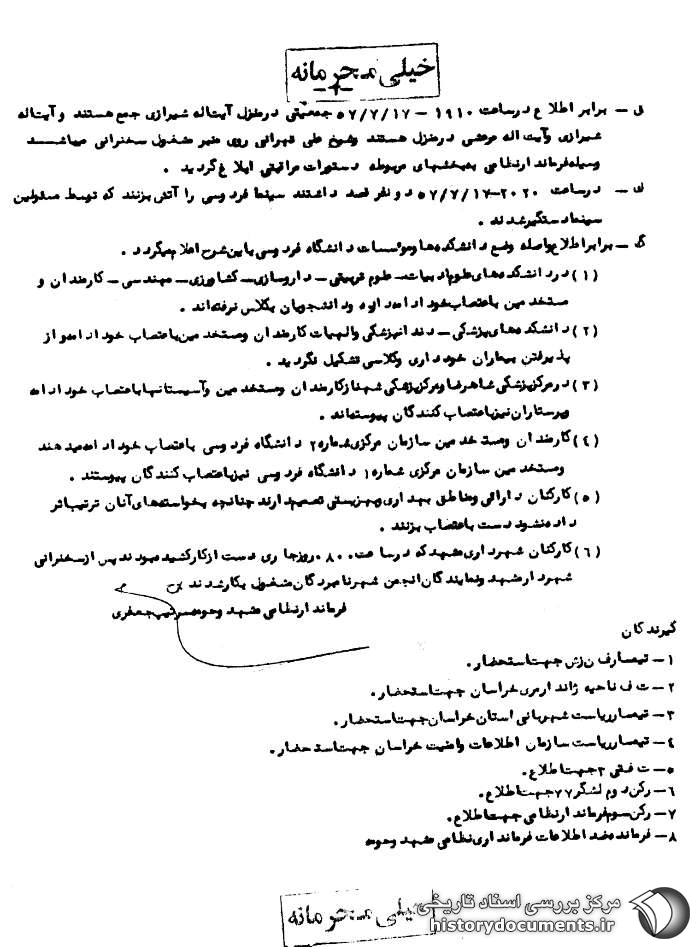 خیلی محرمانه
ی – برابر اطلاع درساعت ۱۹۱۰ – ۵۷/۷/۱۷ جمعیتی درمنزل آیت‌اله شیرازی جمع هستند و آیت‌اله
شیرازی وآیت اله مرعشی درمنزل هستند وشیخ علی تهرانی روی منبر مشغول سخنرانی میباشد
وسیله فرماندار نظامی به‌بخشهای مربوطه دستورات مراقبتی ابلاغ گردید .
درساعت ۲۰۲۰–۵۷/۷/۱۷ دو نفر قصد داشتند سینما فردوسی را آتش بزنند که توسط مسئولین
سینما دستگیر شدند .
ک – برابر اطلاع واصله وضع دانشکده‌ها وموسسات دانشگاه فردوسی باین شرح اعلام میگردد .
(۱) در دانشکده‌های علوم ادبیات – علوم تربیتی – داروسازی – کشاورزی – مهندسی – کارمندان و
مستخدمین باعتصاب خود ادامه داده ودانشجویان بکلاس نرفته‌اند .
(۲) دانشکده‌های پزشکی – دندانپزشکی والهیات کارمندان ومستخدمین باعتصاب خود ادامه و از
پذیرفتن بیماران خودداری وکلاسی تشکیل نگردید .
(۳) در مرکز پزشکی شاهرضا ومرکز پزشکی شهناز کارمندان ومستخدمین وآسیستانها باعتصاب خود ادامه
وپرستاران نیز باعتصاب کنندگان پیوسته‌اند .
(۴) کارمندان ومستخدمین سازمان مرکزی شماره ۲ دانشگاه فردوسی باعتصاب خود ادامه میدهند
ومستخدمین سازمان مرکزی شماره ۱ دانشگاه فردوسی نیز باعتصاب کنندگان پیوستند .
(۵) کارکنان دارائی ومناطق بهداری وبهزیستی تصمیم دارند چنانچه بخواسته‌های آنان ترتیب اثر
داده نشود دست باعتصاب بزنند .
(۶) کارکنان شهرداری مشهد که درساعت ۰۸۰۰ روز جاری دست از کار کشیده بودند پس از سخنرانی
شهردار مشهد ونمایندگان انجمن شهر نامبردگان مشغول بکار شدند
فرماندار نظامی مشهد وحومه سرتیپ جعفری
گیرندگان
۱– تیمسار ف ن ز ش جهت استحضار .
۲– ت ف ناحیه ژاندارمری خراسان جهت استحضار .
۳– تیمسار ریاست شهربانی استان خراسان جهت استحضار .
۴– تیمسار ریاست سازمان اطلاعات وامنیت خراسان جهت استحضار .
۵– ت ف تی ۲ جهت اطلاع .
۶– رکن دوم لشگر ۷۷ جهت اطلاع .
۷– رکن سوم فرماندار نظامی جهت اطلاع .
۸– فرمانده ضد اطلاعات فرمانداری نظامی مشهد وحومه
خیلی محرمانه
مرکز بررسی اسناد تاریخی
historydocuments.ir